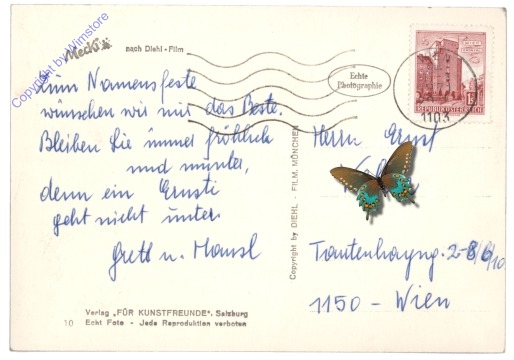 Copyright by Wimstore
Mecki
nach Diehl-Film
Zum Namensfeste
wünschen wir nur das Beste.
Bleiben Sie immer fröhlich
und munter,
denn ein Ernsti
geht nicht unter.
Gretl u. Hansl
Echte
Photographie
REPUBLIK ÖSTERREICH
1103
Herrn Ernst
Tautenhayng. 2-8/6/10
1150 - Wien
Copyright by DIEHL - FILM, MÜNCHEN
Verlag „FÜR KUNSTFREUNDE", Salzburg
10 Echt Foto - Jede Reproduktion verboten